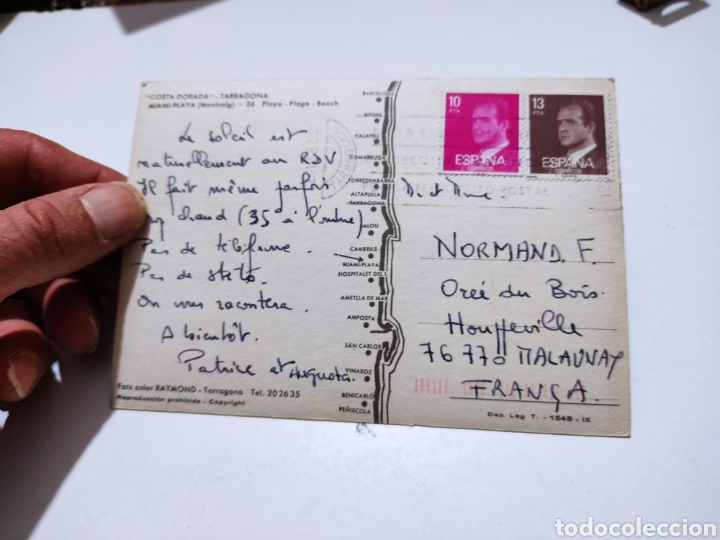 "COSTA DORADA" - TARRAGONA
MIAMI-PLAYA (Montroig) - 26 Playa - Plage - Beach
Le soleil est
naturellement au RDV
Il fait même parfois
chaud (35 à l'ombre)
Pas de téléphone.
Pas de stéto.
On vous racontera.
A bientôt.
Patrice et Augusta.
Foto color RAYMOND - Tarragona Tel. 202635
Reproducción prohibida - Copyright
BARCELONA
SITGES
CALAFELL
COMARRUGA
TORREDEMBARRA
ALTAFULLA
TARRAGONA
SALOU
CAMBRILS
MIAMI-PLAYA
HOSPITALET DEL I.
AMETLLA DE MAR
AMPOSTA
SAN CARLOS
VINAROZ
BENICARLO
PEÑISCOLA
10
PTA
ESPAÑA
CORREOS
13
PTA
ESPAÑA
CORREOS
POSTAL
Dr et Mme.
NORMAND. F.
Orée du Bois.
Houppeville
76 770 MALAUNAY
FRANÇA.
Dep. Leg T. - 1545 - IX
todocoleccion